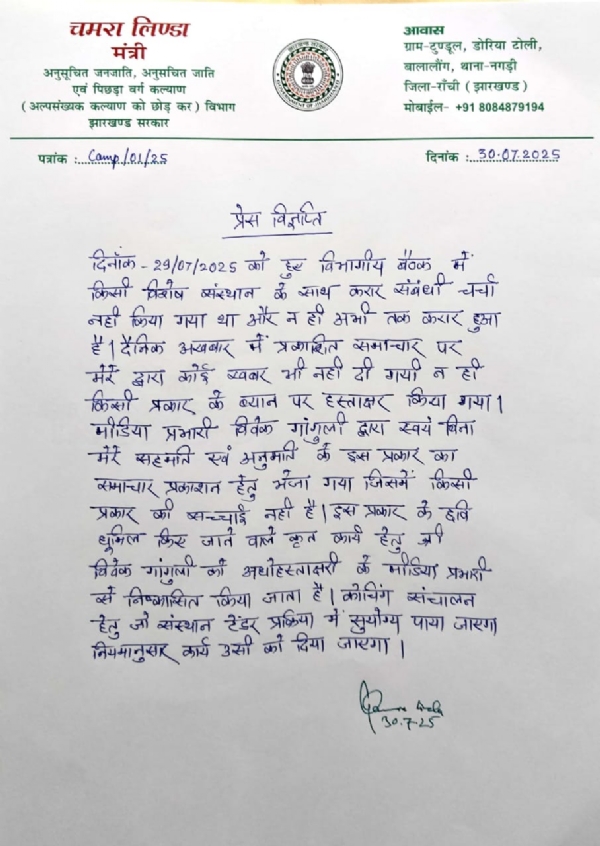 चमरा लिण्डा
मंत्री
अनुसूचित जनजाति, अनुसचित जाति
एवं पिछड़ा वर्ग कल्याण
( अल्पसंख्यक कल्याण को छोड़ कर ) विभाग
झारखण्ड सरकार
आवास
ग्राम-टुण्डूल, डोरिया टोली,
बालालौंग, थाना-नगड़ी
जिला-राँची ( झारखण्ड )
मोबाईल- +91 8084879194
पत्रांक : Camp/01/25
दिनांक : 30.07.2025
प्रेस विज्ञप्ति
दिनाँक - 29/07/2025 को हुए विभागीय बैठक में
किसी विशेष संस्थान के साथ करार संबंधी चर्चा
नहीं किया गया था और न ही अभी तक करार हुआ
है। दैनिक अखबार में प्रकाशित समाचार पर
मेरे द्वारा कोई खबर भी नहीं दी गयी न ही
किसी प्रकार के ब्यान पर हस्ताक्षर किया गया।
मीडिया प्रभारी विवेक गांगुली द्वारा स्वयं बिना
मेरे सहमति एवं अनुमति के इस प्रकार का
समाचार प्रकाशन हेतु भेजा गया जिसमें किसी
प्रकार की सच्चाई नहीं है। इस प्रकार के छवि
धूमिल किए जाने वाले कृत कार्य हेतु श्री
विवेक गांगुली को अधोहस्ताक्षरी के मीडिया प्रभारी
से निष्कासित किया जाता है। कोचिंग संचालन
हेतु जो संस्थान टेंडर प्रक्रिया में सुयोग्य पाया जाएगा
नियमानुसार कार्य उसी को दिया जाएगा।
30.7.25